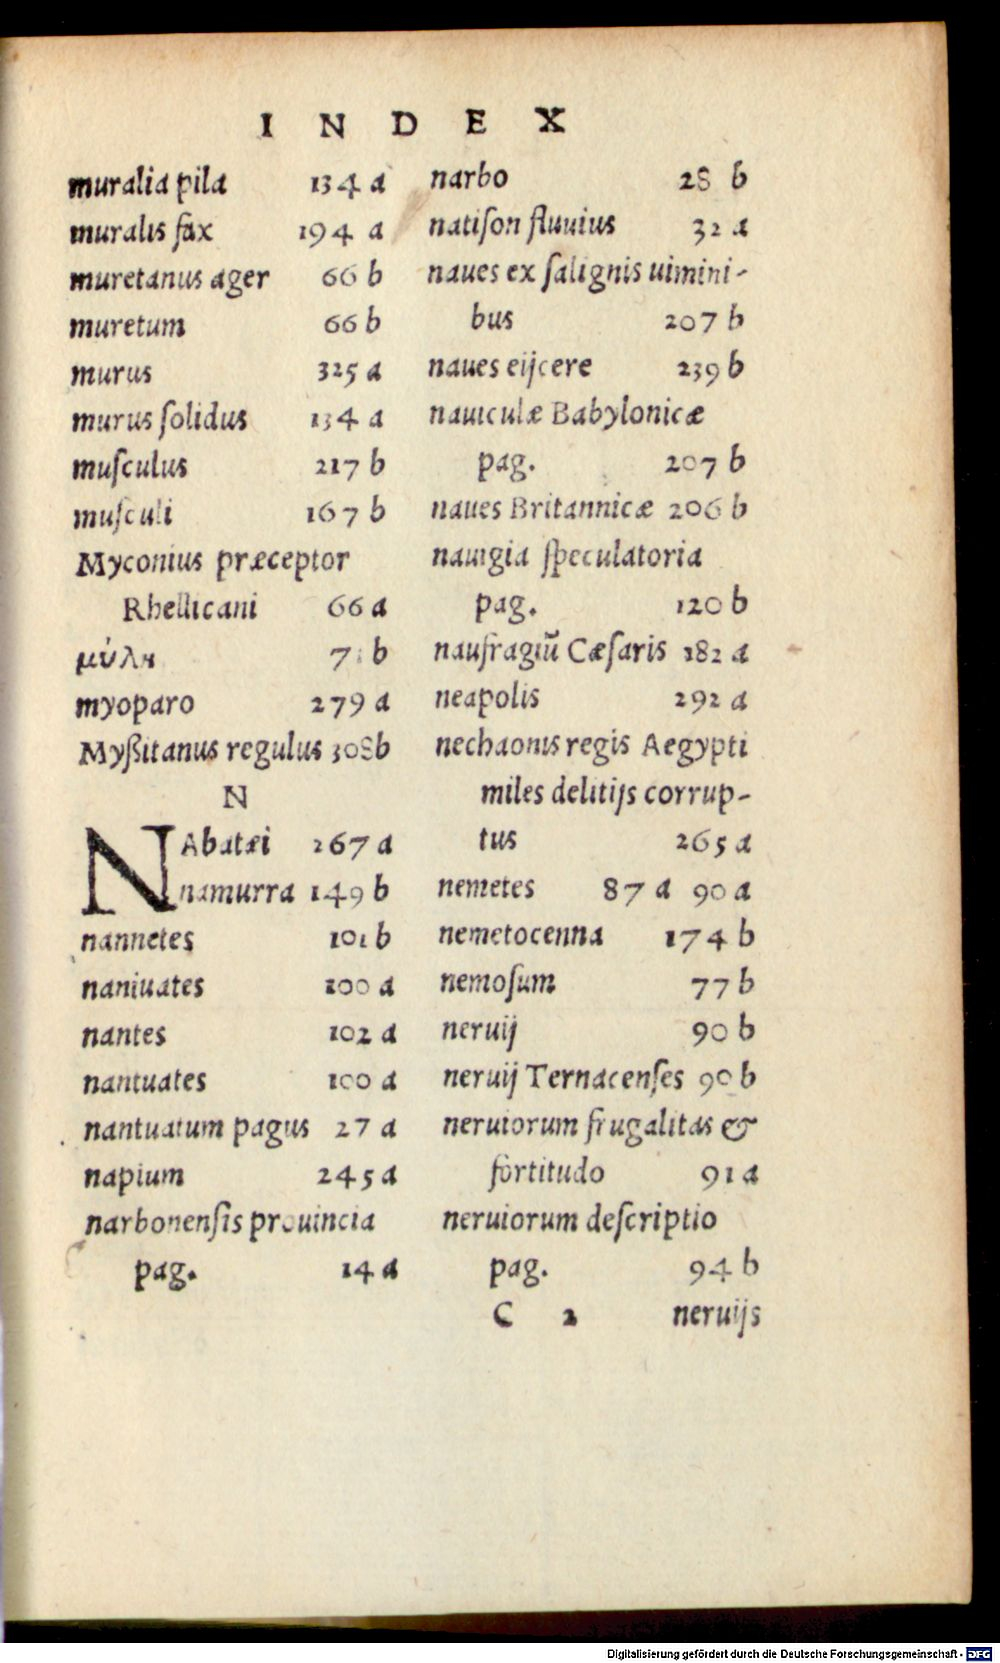 INDEX
muralia pila 134 a
muralis fax 194 a
muretanus ager 66 b
muretum 66 b
murus 325 a
murus ſolidus 134 a
muſculus 217 b
muſculi 167 b
Myconius præceptor
Rhellicani 66 a
μύλη b
myoparo 279 a
Myßitanus regulus 308b
N
NAbatæi 267 a
namurra 149 b
nannetes 101 b
naniuates 100 a
nantes 102 a
nantuates 100 a
nantuatum pagus 27 a
napium 245 a
narbonenſis prouincia
pag. 14 a
narbo 28 b
natiſon fluuius 32 a
naues ex ſalignis uimini-
bus 207 b
naues eijcere 239 b
nauiculæ Babylonicæ
pag. 207 b
naues Britannicæ 206 b
nauigia ſpeculatoria
pag. 120 b
naufragiũ Cæſaris 182 a
neapolis 292 a
nechaonis regis Aegypti
miles delitijs corrup-
tus 265 a
nemetes 87 a 90 a
nemetocenna 174 b
nemoſum 77 b
neruij 90 b
neruij Ternacenſes 90 b
neruiorum frugalitas &
fortitudo 91 a
neruiorum deſcriptio
pag. 94 b
C 2 neruijs
Digitalisierung gefördert durch die Deutsche Forschungsgemeinschaft - DFG